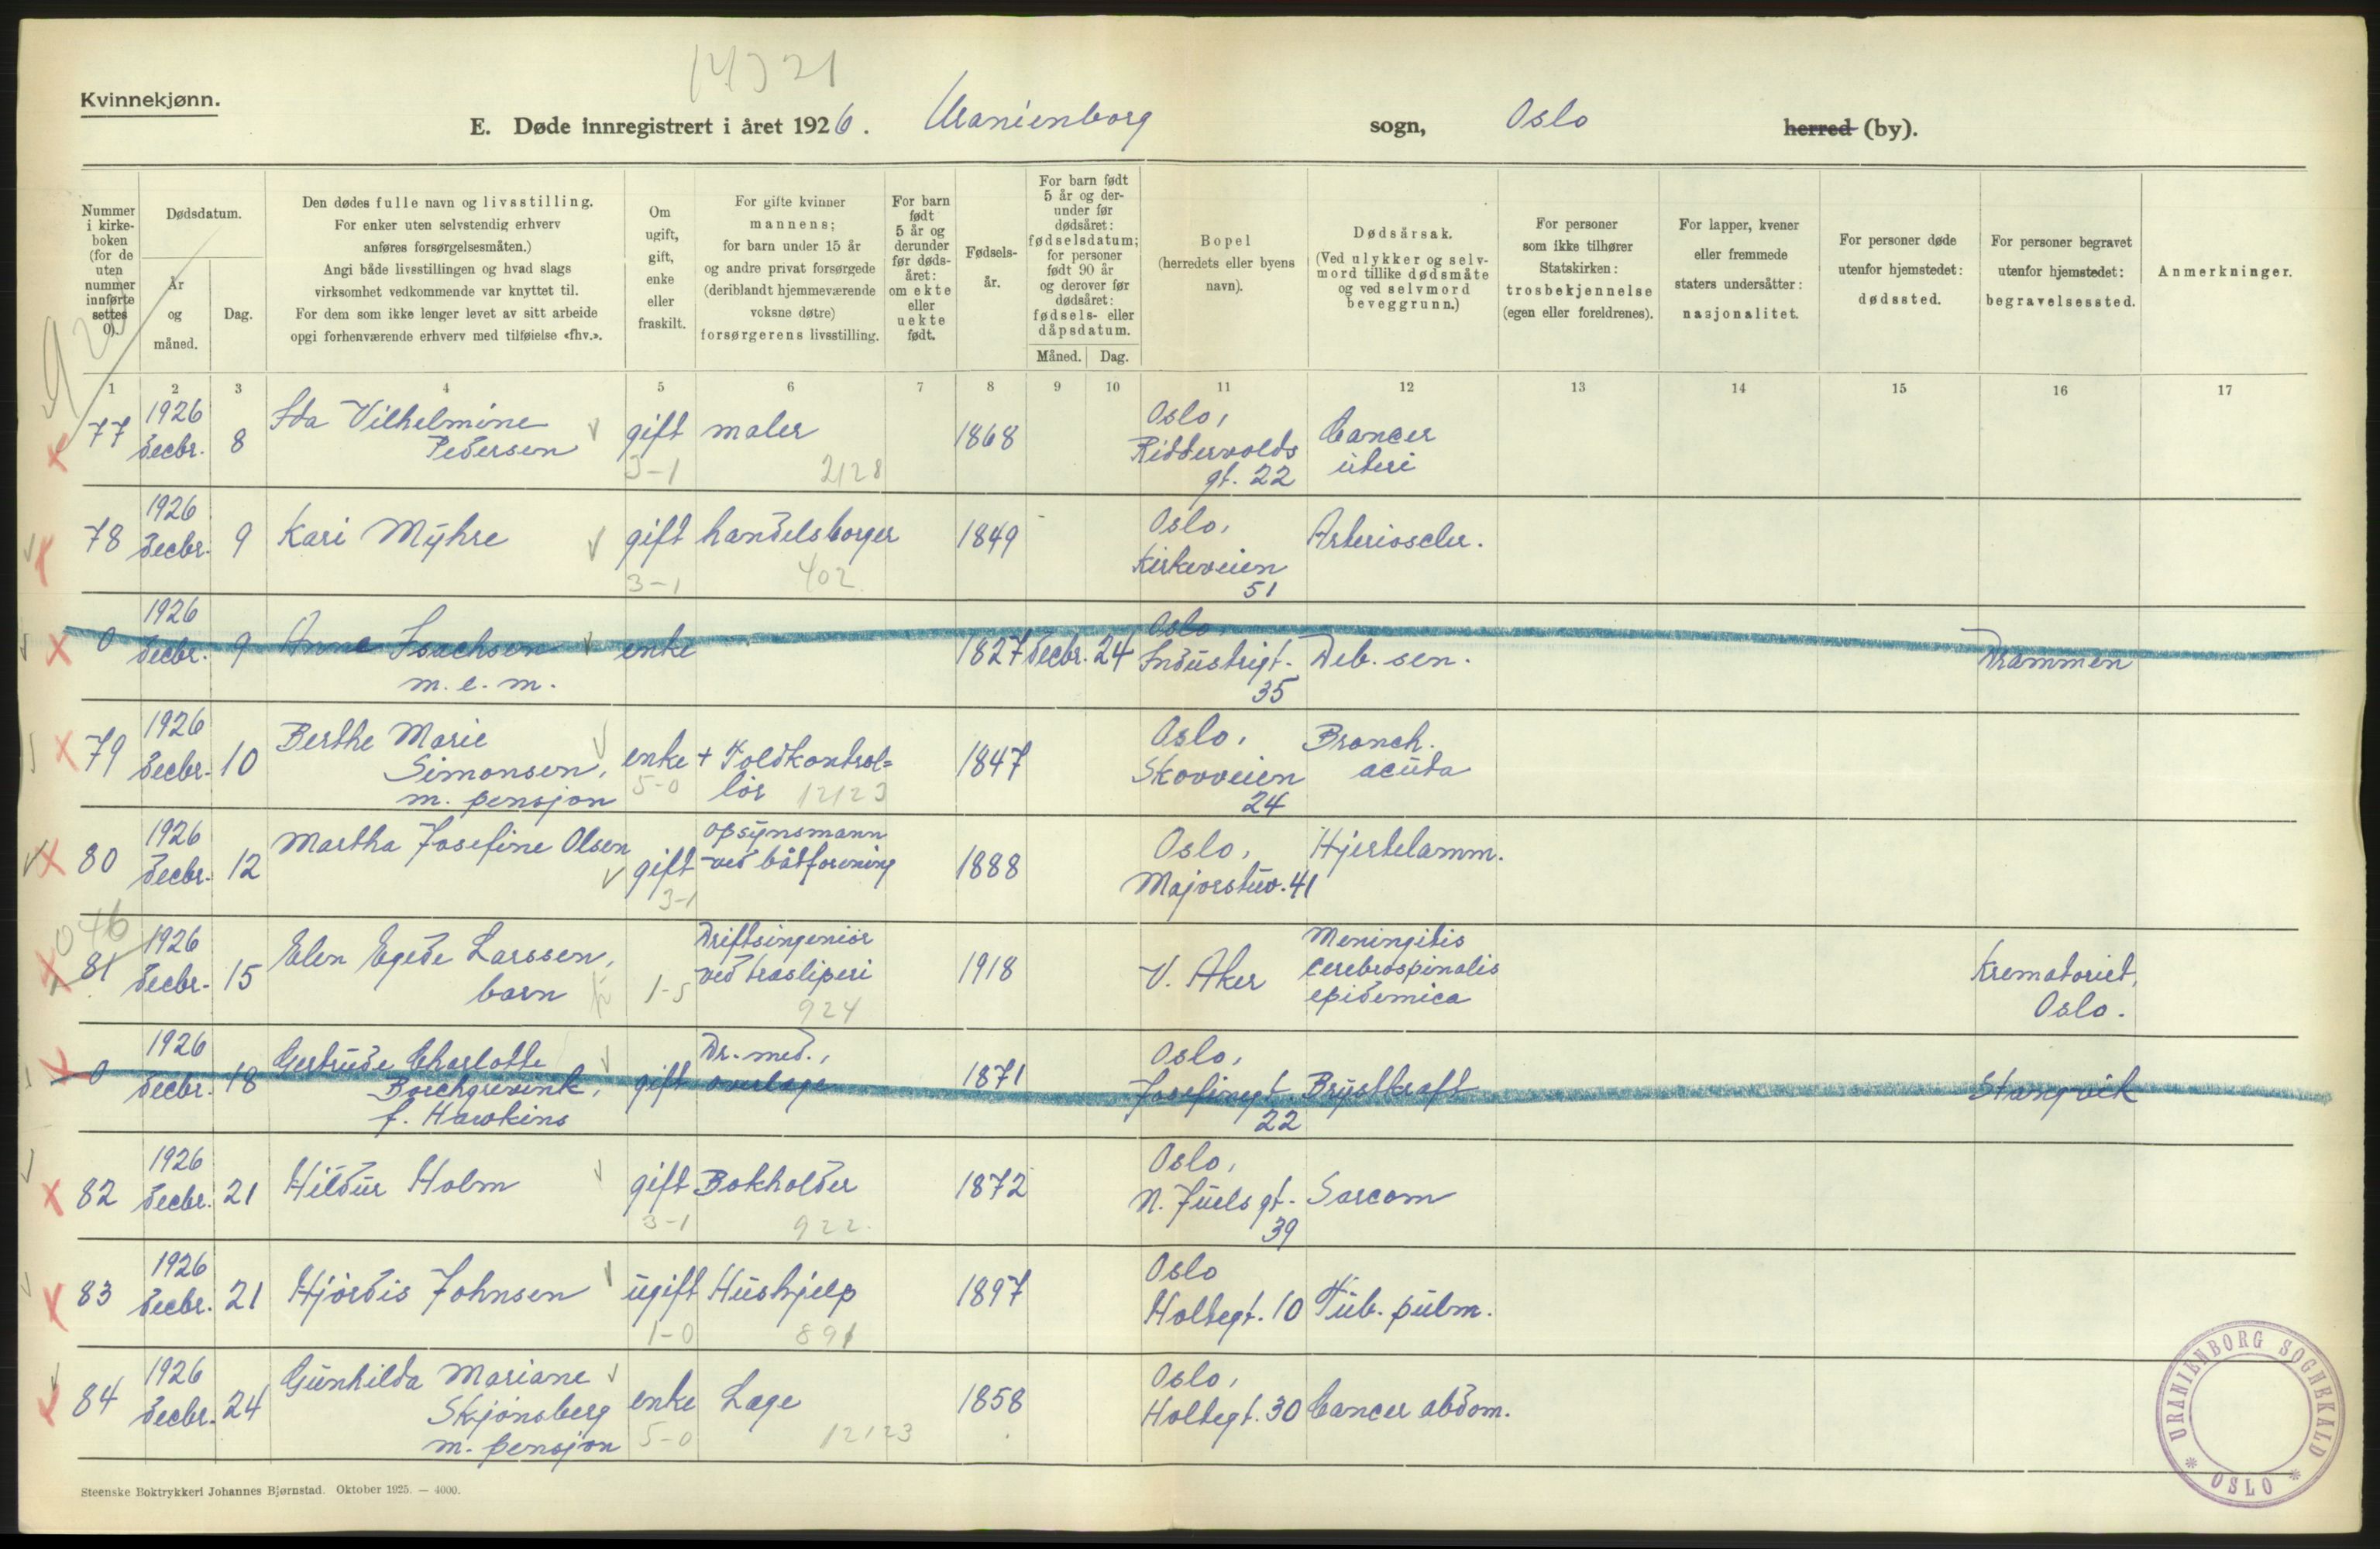 14321
Kvinnekjønn.
E. Døde innregistrert i året 1926. Uranienborg sogn, Oslo herred (by).
Nummer i kirkeboken (for de uten nummer innførte settes 0).
Dødsdatum.
År og måned.
Dag.
Den dødes fulle navn og livsstilling.
For enker uten selvstendig erhverv
anføres forsørgelsesmåten.)
Angi både livsstillingen og hvad slags
virksomhet vedkommende var knyttet til.
For dem som ikke lenger levet av sitt arbeide
opgi forhenværende erhverv med tilføielse «fhv.».
Om
ugift,
gift,
enke
eller
fraskilt.
For gifte kvinner
mannens;
for barn under 15 år
og andre privat forsørgede
(deriblandt hjemmeværende
voksne døtre)
forsørgerens livsstilling.
For barn
født
5 år og
derunder
før døds-
året:
om ekte
eller
uekte
født.
Fødsels-
år.
For barn født
5 år og der-
under før
dødsåret:
fødselsdatum;
for personer
født 90 år
og derover før
dødsåret:
fødsels- eller
dåpsdatum.
Måned. Dag.
Bopel
(herredets eller byens
navn).
Dødsårsak.
(Ved ulykker og selv-
mord tillike dødsmåte
og ved selvmord
beveggrunn.)
For personer
som ikke tilhører
Statskirken:
trosbekjennelse
(egen eller foreldrenes).
For lapper, kvener
eller fremmede
staters undersåtter:
nasjonalitet.
For personer døde
utenfor hjemstedet:
dødssted.
For personer begravet
utenfor hjemstedet:
begravelsessted.
Anmerkninger.
1 2 3 4 5 6 7 8 9 10 11 12 13 14 15 16 17
77 1926 decbr. 8 Ida Vilhelmine Pedersen gift 3-1 maler 2128 1868 Oslo, Riddervolds gt. 22 Cancer uteri
78 1926 decbr. 9 Kari Myhre gift 3-1 handelsborger 402 1849 Oslo, Kirkeveien 51 Arterioscler.
0 1926 decbr. 9 Anne Isachsen m.e.m. enke 1827 decbr. 24 Oslo, Industrigt. 35 Deb. sen. Drammen
79 1926 decbr. 10 Berthe Marie Simonsen, m. pensjon enke 5-0 + Toldkontrol= lør 12123 1847 Oslo, Skovveien 24 Bronch. acuta
80 1926 decbr. 12 Martha Josefine Olsen gift 3-1 opsynsmann ved båtforening 1888 Oslo, Majorstuv. 41 Hjertelamm.
81 1926 decbr. 15 Elen Egede Larssen, barn 1-5 Driftsingeniør ved trasliperi 924 1918 V. Aker Meningitis cerebrospinalis epidemica Krematoriet, Oslo.
0 1926 decbr. 18 Gertrude Charlotte Borchgrevink, f. Hawkins gift Dr. med., overlæge 1871 Oslo, Josefinegt. 22 Brystkræft Stangvik
82 1926 decbr. 21 Hildur Holm gift 3-1 Bokholder 922. 1872 Oslo, N. Juels gt. 39 Sarcom
83 1926 decbr. 21 Hjørdis Johnsen ugift 1-0 Hushjelp 891 1897 Oslo Holtegt. 10 Tub. pulm.
84 1926 decbr. 24 Gunhilda Mariane Skjønsberg m. pensjon enke 5-0 Læge 12123 1858 Oslo, Holtegt. 30 Cancer abdom.
URANIENBORG SOGNEKALD * OSLO *
Steenske Boktrykkeri Johannes Bjørnstad. Oktober 1925. — 4000.